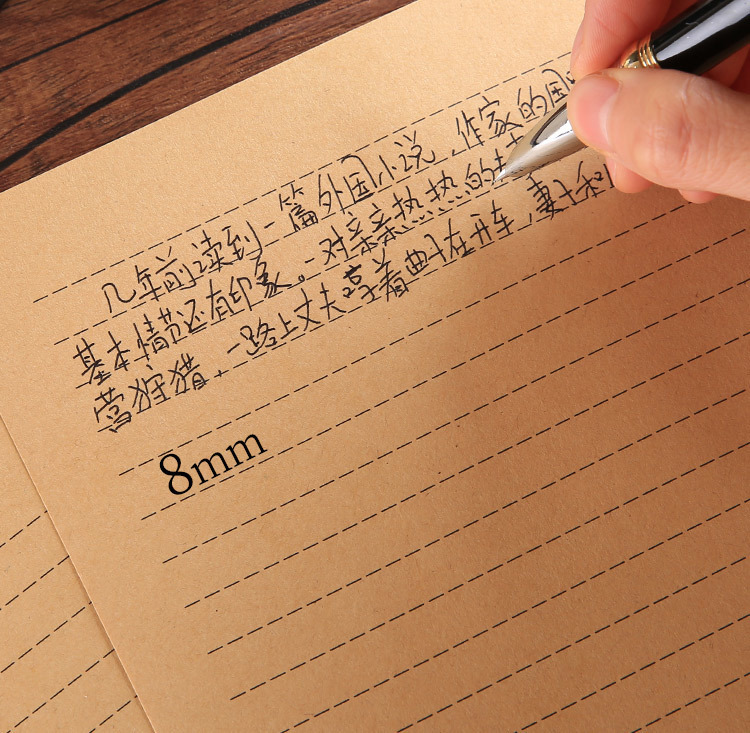 几年前读到一篇外国小说，作家的国
基本情节还有印象。一对亲亲热热的
营狩猎，一路上丈夫享着曲子在开车，妻子和
8mm